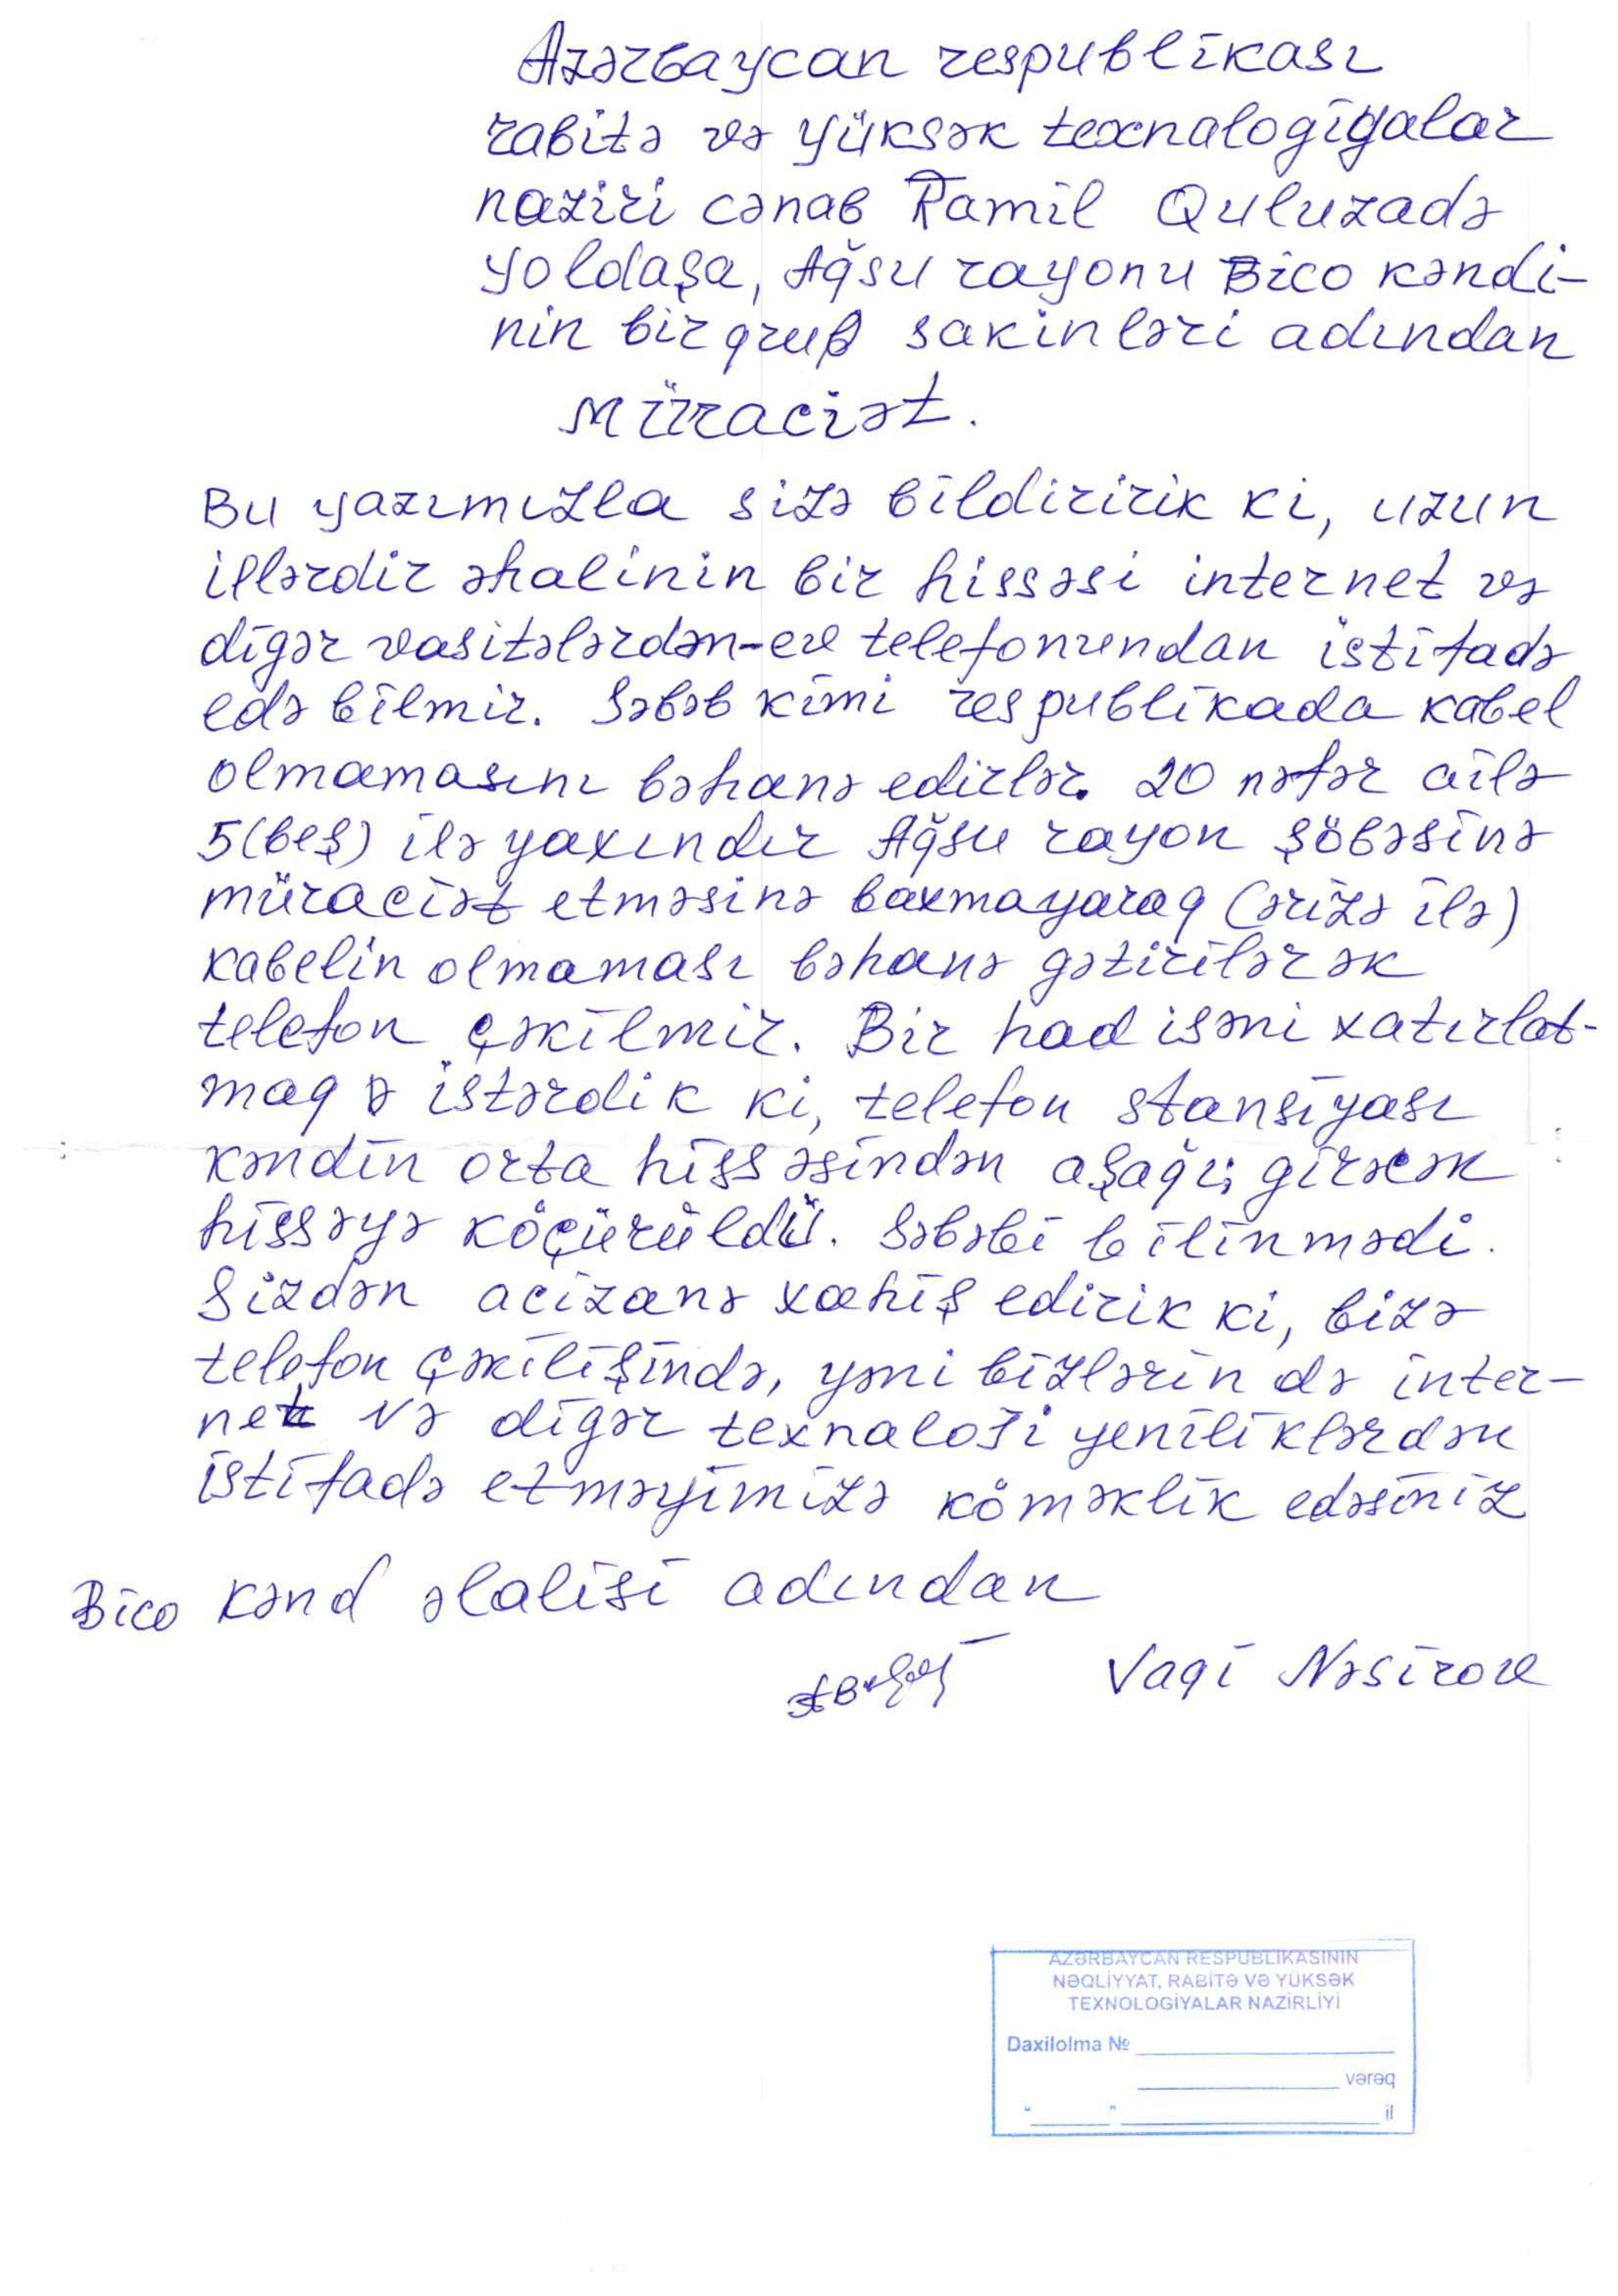 Azərbaycan respublikası
rabitə və yüksək texnalogiyalar
naziri cənab Ramil Quluzadə
yoldaşa, Ağsu rayonu Bico kəndi-
nin bir qrup sakinləri adından
Müraciət.
Bu yazımızla sizə bildiririk ki, uzun
illərdir əhalinin bir hissəsi internet və
digər vasitələrdən-ev telefonundan istifadə
edə bilmir. Səbəb kimi respublikada kabel
olmamasını bəhanə edirlər. 20 nəfər ailə
5(beş) ilə yaxındır Ağsu rayon şöbəsinə
müraciət etməsinə baxmayaraq (ərizə ilə)
kabelin olmaması bəhanə gətirilərək
telefon çəkilmir. Bir hadisəni xatırlat-
maq istərdik ki, telefon stansiyası
kəndin orta hissəsindən aşağı, girəcək
hissəyə köçürüldü. Səbəbi bilinmədi.
Sizdən acizanə xahiş edirik ki, bizə
telefon çəkilişində, yəni bizlərin də inter-
net və digər texnaloji yeniliklərdən
istifadə etməyimizə köməklik edəsiniz
Bico kənd əlalisi adından
Vaqi Nəsirov
AZƏRBAYCAN RESPUBLİKASININ
NƏQLİYYAT, RABİTƏ VƏ YÜKSƏK
TEXNOLOGİYALAR NAZİRLİYİ
Daxilolma №
vərəq
"____" il